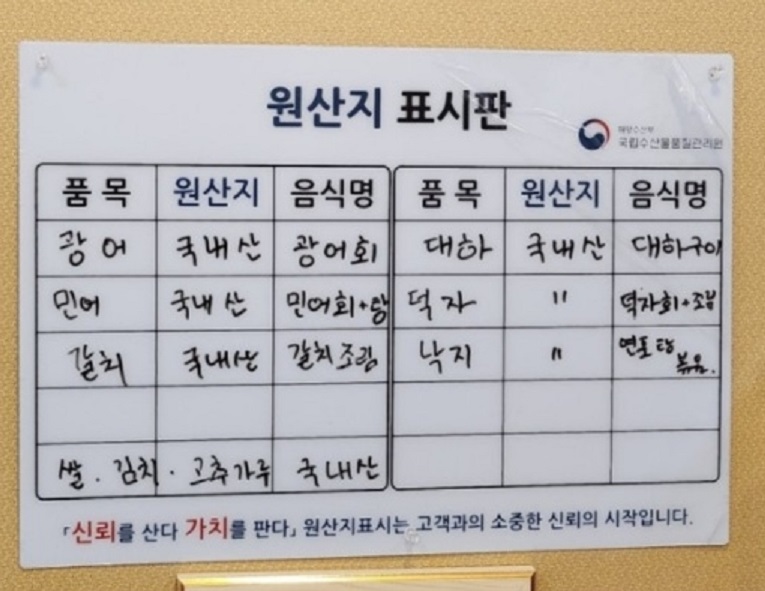 원산지 표시판
해양수산부
국립수산물품질관리원
품목 원산지 음식명 품목 원산지 음식명
광어 국내산 광어회 대하 국내산 대하구이
민어 국내산 민어회+탕 덕자 " 덕자회+조림
갈치 국내산 갈치조림 낙지 " 연포탕
볶음.
쌀. 김치. 고추가루 국내산
「신뢰를 산다 가치를 판다」 원산지표시는 고객과의 소중한 신뢰의 시작입니다.